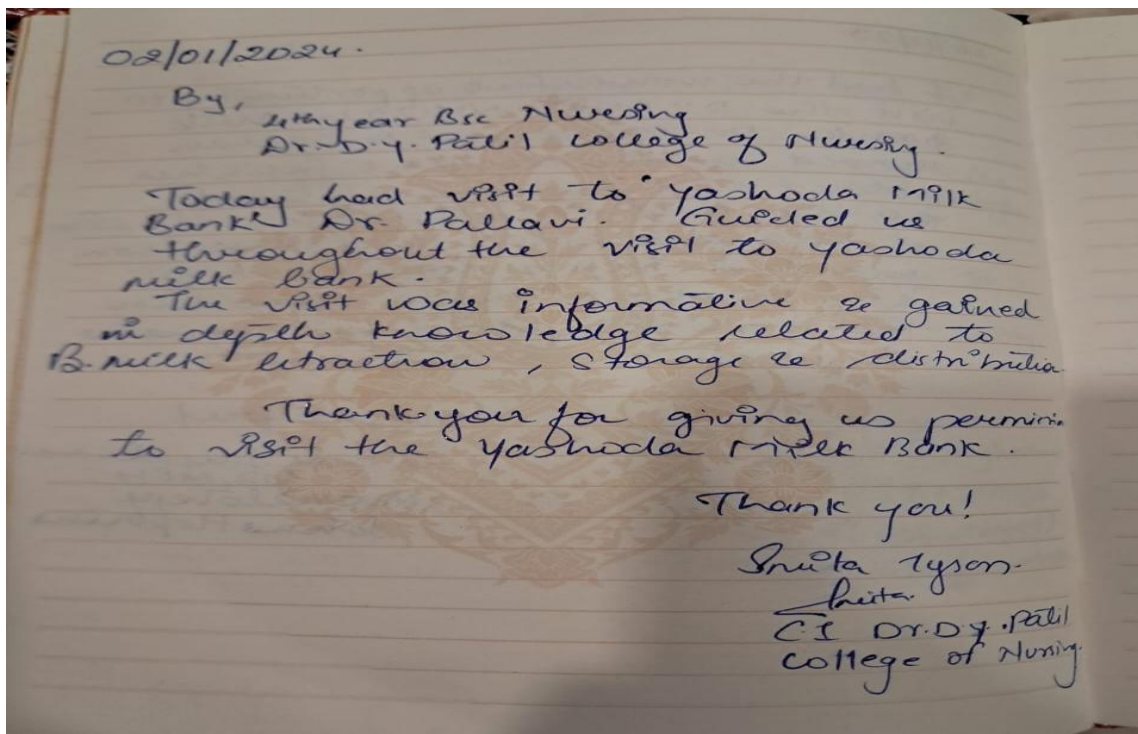 02/01/2024.
By,
4th year Bsc Nursing
Dr. D.Y. Patil College of Nursing.
Today had visit to "Yashoda Milk
Bank" Dr. Pallavi. Guided us
throughout the visit to Yashoda
milk bank.
The visit was informative & gained
in depth knowledge related to
B. milk extraction, storage & distribution
Thank you for giving us permission
to visit the Yashoda Milk Bank.
Thank you!
Tyson.
CI Dr. D.Y. Patil
College of Nursing.